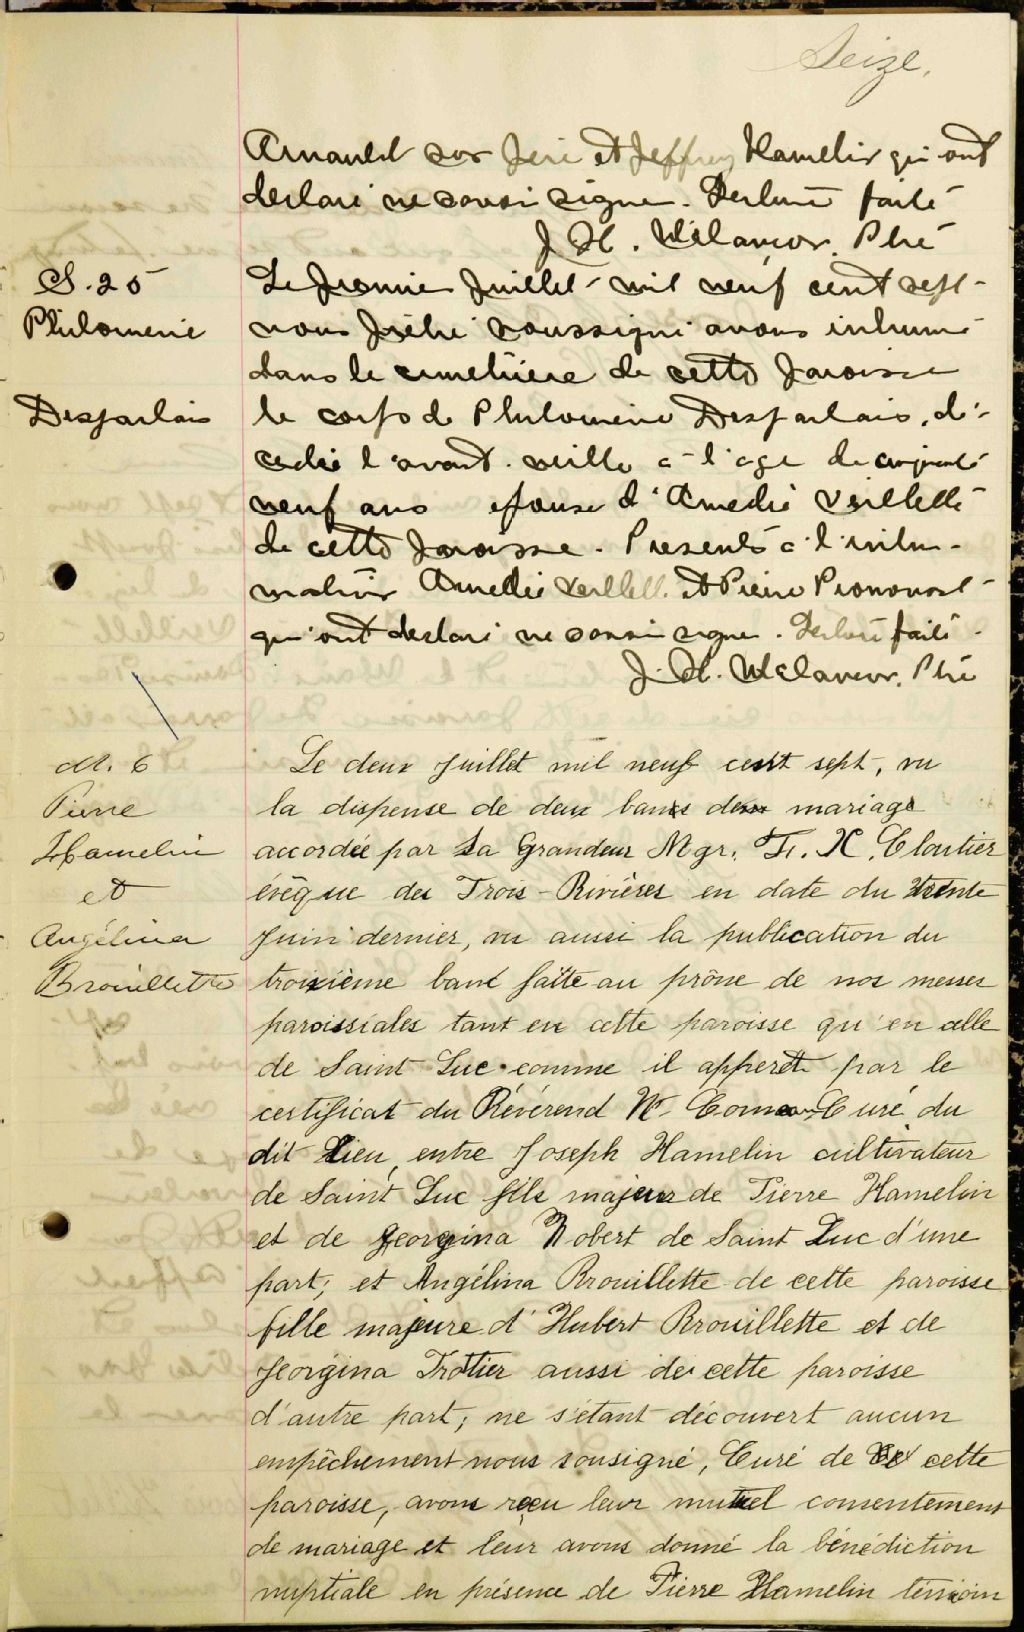 Seize.
Arnauld son père et Jeffrey Hamelin qui ont
declaré ne savoir signer. Lecture faite
J. H. Ptre
S. 25
Philomene
Desjarlais
Le premier Juillet mil neuf cent sept
nous prêtre soussigné avons inhumé
dans le cimetière de cette paroisse
le corps de Philomène Desjarlais, dé-
cedée l'avant-veille à l'age de cinquante
neuf ans epouse d'Amedée Veillette
de cette paroisse. Presents à l'inhu-
mation Amedée Veillette et Pierre Pronovost
qui ont declaré ne savoir signer. Lecture faite.
J. H. Ptre
M. 6
Pierre
Hamelin
et
Angélina
Brouillette
Le deux Juillet mil neuf cent sept, vu
la dispense de deux bans de mariage
accordée par Sa Grandeur Mgr. F. X. Cloutier
évêque des Trois-Rivières en date du trente
Juin dernier, vu aussi la publication du
troisième banc faite au prône de nos messes
paroissiales tant en cette paroisse qu'en celle
de Saint Luc comme il appert par le
certificat du Révérend N. Comeau Curé du
dit Lieu, entre Joseph Hamelin cultivateur
de Saint Luc fils majeur de Pierre Hamelin
et de Georgina Robert de Saint Luc d'une
part; et Angélina Brouillette de cette paroisse
fille majeure d'Hubert Brouillette et de
Georgina Trotier aussi de cette paroisse
d'autre part; ne s'étant découvert aucun
empêchement nous sousigné, Curé de cette
paroisse, avons reçu leur mutuel consentement
de mariage et leur avons donné la bénédiction
nuptiale en présence de Pierre Hamelin témoin